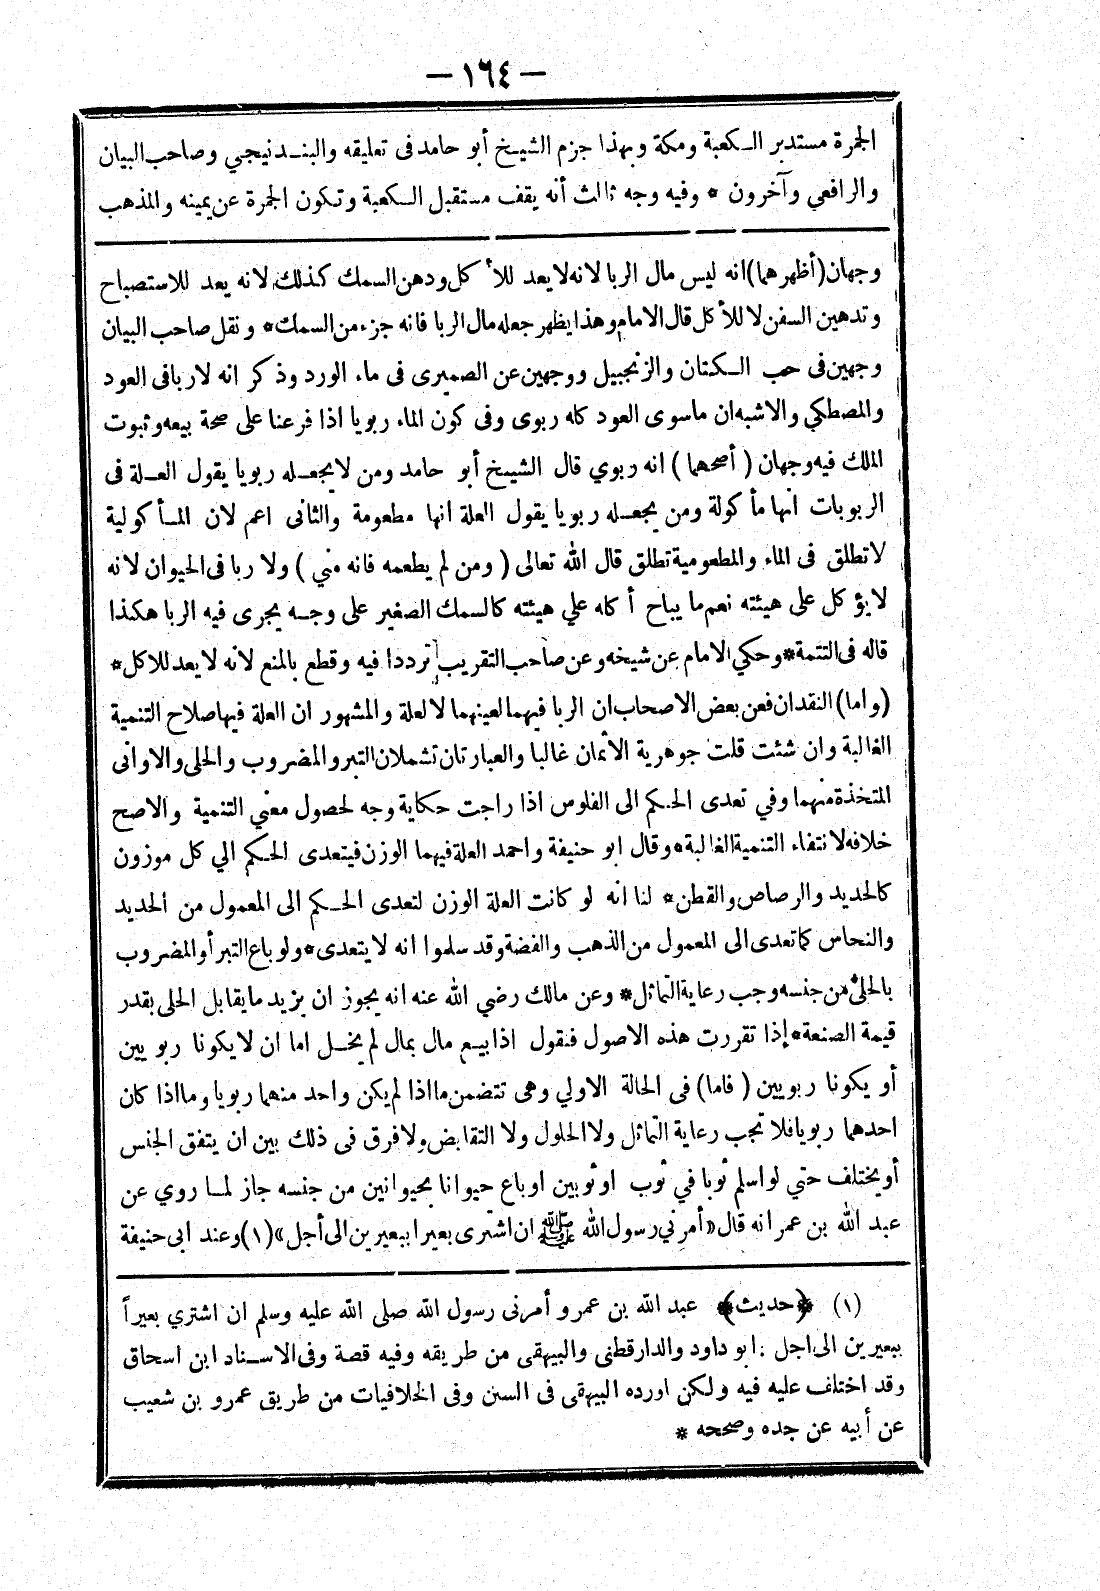 — ١٦٤ —
الجمرة مستدبر الكعبة ومكة وبهذا جزم الشيخ أبو حامد فى تعليقه والبندنيجي وصاحب البيان
والرافعي وآخرون * وفيه وجه ثالث أنه يقف مستقبل الكعبة وتكون الجمرة عن يمينه والمذهب
وجهان (أظهرهما) انه ليس مال الربا لانه لا يعد للأكل ودهن السمك كذلك لانه يعد للاستصباح
وتدهين السفن لا للأكل قال الامام وهذا يظهر جعله مال الربا فانه جزء من السمك * ونقل صاحب البيان
وجهين فى حب الكتان والزنجبيل ووجهين عن الصميرى فى ماء الورد وذكر انه لا ربا فى العود
والمصطكي والاشبه ان ماسوى العود كله ربوى وفى كون الماء ربويا اذا فرعنا على صحة بيعه وثبوت
الملك فيه وجهان (أصحهما) انه ربوي قال الشيخ أبو حامد ومن لا يجعله ربويا يقول العلة فى
الربوبات انها مأكولة ومن يجعله ربويا يقول العلة انها مطعومة والثانى اعم لان المأكولية
لا تطلق فى الماء والمطعومية تطلق قال الله تعالى (ومن لم يطعمه فانه مني) ولا ربا فى الحيوان لانه
لا يؤكل على هيئته نعم ما يباح أكله علي هيئته كالسمك الصغير على وجه يجرى فيه الربا هكذا
قاله فى التتمة * وحكي الامام عن شيخه وعن صاحب التقريب ترددا فيه وقطع بالمنع لانه لا يعد للاكل *
(واما) النقدان فعن بعض الاصحاب ان الربا فيهما لعينهما لا لعلة والمشهور ان العلة فيها صلاح التنمية
الغالبة وان شئت قلت جوهرية الأثمان غالبا والعبارتان تشملان التبر والمضروب والحلى والاوانى
المتخذة منهما وفي تعدى الحكم الى الفلوس اذا راجت حكاية وجه لحصول معني التنمية والاصح
خلافه لانتفاء التنمية الغالبة * وقال ابو حنيفة واحمد العلة فيهما الوزن فيتعدى الحكم الي كل موزون
كالحديد والرصاص والقطن * لنا انه لو كانت العلة الوزن لتعدى الحكم الى المعمول من الحديد
والنحاس كما تعدى الى المعمول من الذهب والفضة وقد سلموا انه لا يتعدى * ولو باع التبر أو المضروب
بالحلى من جنسه وجب رعاية التماثل * وعن مالك رضي الله عنه انه يجوز ان يزيد ما يقابل الحلى بقدر
قيمة الصنعة * إذا تقررت هذه الاصول فنقول اذا بيع مال بمال لم يخل اما ان لا يكونا ربويين
أو يكونا ربويين (فاما) فى الحالة الاولي وهى تتضمن ما اذا لم يكن واحد منهما ربويا وما اذا كان
احدهما ربويا فلا تجب رعاية التماثل ولا الحلول ولا التقابض ولا فرق فى ذلك بين ان يتفق الجنس
أو يختلف حتي لو اسلم ثوبا في ثوب او ثوبين او باع حيوانا بحيوانين من جنسه جاز لما روي عن
عبد الله بن عمر انه قال «أمرني رسول الله ﷺ ان اشترى بعيرا ببعيرين الى أجل» (١) وعند ابى حنيفة
(١) ﴿حديث﴾ عبد الله بن عمرو أمرنى رسول الله صلى الله عليه وسلم ان اشتري بعيراً
ببعيرين الى اجل : ابو داود والدارقطنى والبيهقى من طريقه وفيه قصة وفى الاسناد ابن اسحاق
وقد اختلف عليه فيه ولكن اورده البيهقى فى السنن وفى الخلافيات من طريق عمرو بن شعيب
عن أبيه عن جده وصححه *